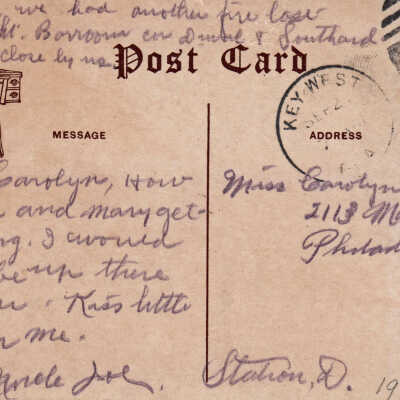 we had another fire last
Barroom cor Duval & Southard
close by us.
Post Card
KEY WEST
SEP 2
MESSAGE
ADDRESS
Carolyn, How
and Mary get-
ng. I would
be up there
Kiss little
me.
Uncle Joe.
Miss Carolyn
2113 M
Philad
Station, D.
19